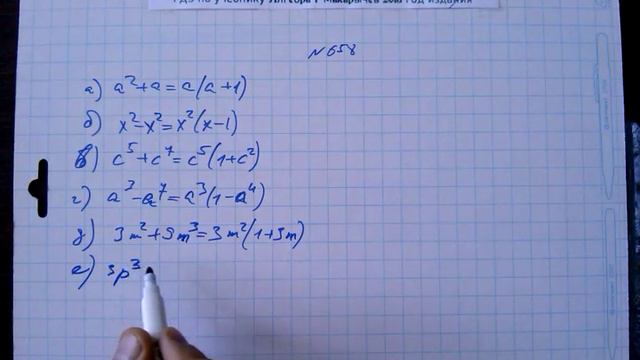 ГДЗ по учебнику Алгебра 7 Макарычев год издания
№658
а) a²+a=a(a+1)
б) x²-x²=x²(x-1)
в) c⁵+c⁷=c⁵(1+c²)
г) a³-a⁷=a³(1-a⁴)
д) 3m²+9m³=3m²(1+3m)
е) 3p³